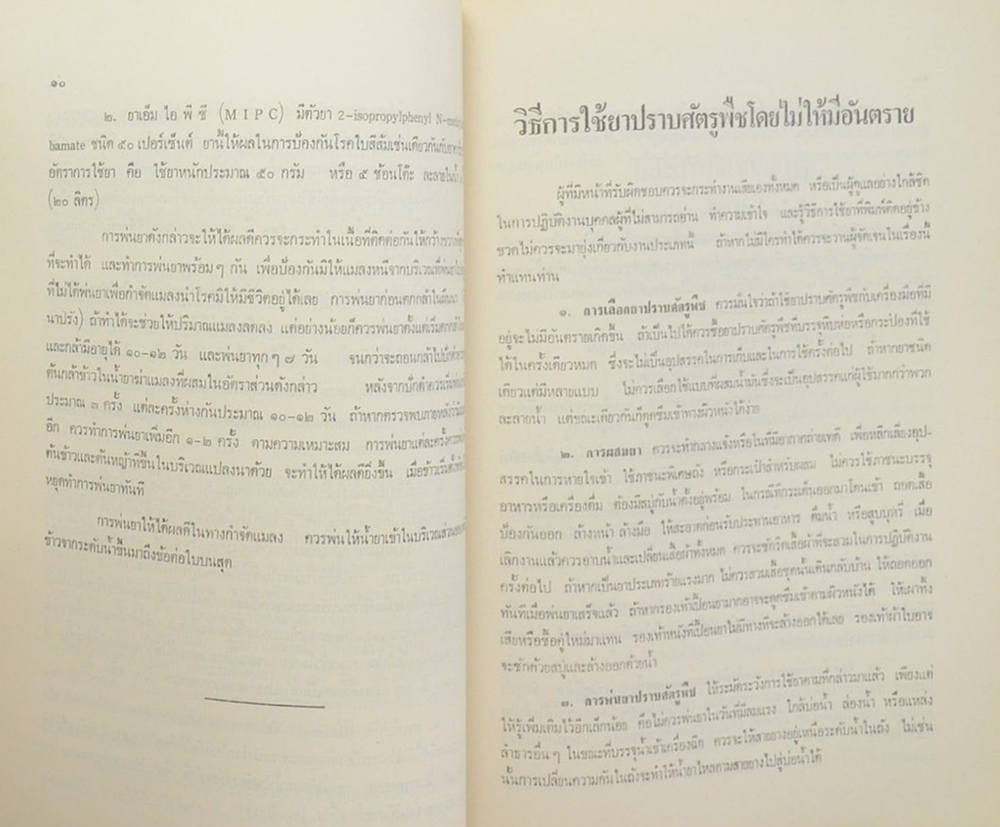 ๑๐
๒. ยาเอ็ม ไอ พี ซี (M I P C) มีตัวยา 2-isopropylphenyl N-
bamate ชนิด ๕๐ เปอร์เซ็นต์ ยานี้ให้ผลในการป้องกันโรคใบสีส้มเช่นเดียวกับ
อัตราการใช้ยา คือ ใช้ยาหนักประมาณ ๕๐ กรัม หรือ ๕ ช้อนโต๊ะ ละลายในน้ำ
(๒๐ ลิตร)
การพ่นยาดังกล่าวจะให้ได้ผลดีควรจะกระทำในเนื้อที่ติดต่อกันให้กว้างขวาง
ที่จะทำได้ และทำการพ่นยาพร้อมๆ กัน เพื่อป้องกันมิให้แมลงหนีจากบริเวณที่พ่นยา
ที่ไม่ได้พ่นยาเพื่อกำจัดแมลงนำโรคมิให้มีชีวิตอยู่ได้เลย การพ่นยาก่อนตกกล้า
นาปรัง) ถ้าทำได้จะช่วยให้ปริมาณแมลงลดลง แต่อย่างน้อยก็ควรพ่นยาตั้งแต่เริ่มตกกล้า
และกล้ามีอายุได้ ๑๐-๑๒ วัน และพ่นยาทุกๆ ๗ วัน จนกว่าจะถอนกล้าไปปักดำ
ต้นกล้าข้าวในน้ำยาฆ่าแมลงที่ผสมในอัตราส่วนดังกล่าว หลังจากปักดำควรเริ่ม
ประมาณ ๓ ครั้ง แต่ละครั้งห่างกันประมาณ ๑๐-๑๒ วัน ถ้าหากตรวจพบภายหลังว่า
อีก ควรทำการพ่นยาเพิ่มอีก ๑-๒ ครั้ง ตามความเหมาะสม การพ่นยาแต่ละครั้ง
ต้นข้าวและต้นหญ้าที่ขึ้นในบริเวณแปลงนาด้วย จะทำให้ได้ผลดียิ่งขึ้น เมื่อข้าวเริ่ม
หยุดทำการพ่นยาทันที
การพ่นยาให้ได้ผลดีในทางกำจัดแมลง ควรพ่นให้น้ำยาเข้าในบริเวณส่วน
ข้าวจากระดับน้ำขึ้นมาถึงข้อต่อใบบนสุด
วิธีการใช้ยาปราบศัตรูพืชโดยไม่ให้มีอันตราย
ผู้ที่มีหน้าที่รับผิดชอบควรจะกระทำงานเสียเองทั้งหมด หรือเป็นผู้ดูแลอย่างใกล้ชิด
ในการปฏิบัติงานบุคคลผู้ที่ไม่สามารถอ่าน ทำความเข้าใจ และรู้วิธีการใช้ยาที่พิมพ์ติดอยู่ข้าง
ขวดไม่ควรจะมายุ่งเกี่ยวกับงานประเภทนี้ ถ้าหากไม่มีใครทำได้ควรจะวานผู้จัดเจนในเรื่องนี้
ทำแทนท่าน
๑. การเลือกยาปราบศัตรูพืช ควรมั่นใจว่าถ้าใช้ยาปราบศัตรูพืชกับเครื่องมือที่มี
อยู่จะไม่มีอันตรายเกิดขึ้น ถ้าเป็นไปได้ควรซื้อยาปราบศัตรูพืชที่บรรจุหีบห่อหรือกระป๋องที่ใช้
ได้ในครั้งเดียวหมด ซึ่งจะไม่เป็นอุปสรรคในการเก็บและในการใช้ครั้งต่อไป ถ้าหากยาชนิด
เดียวแต่มีหลายแบบ ไม่ควรเลือกใช้แบบที่ผสมน้ำมันซึ่งจะเป็นอุปสรรคแก่ผู้ใช้มากกว่าพวก
ละลายน้ำ แต่ขณะเดียวกันก็ดูดซึมเข้าทางผิวหนังได้ง่าย
๒. การผสมยา ควรจะทำกลางแจ้งหรือในที่มีอากาศถ่ายเทดี เพื่อหลีกเลี่ยงอุป-
สรรคในการหายใจเข้า ใช้ภาชนะพิเศษถัง หรือกระเป๋าสำหรับผสม ไม่ควรใช้ภาชนะบรรจุ
อาหารหรือเครื่องดื่ม ต้องมีสบู่กับน้ำตั้งอยู่พร้อม ในกรณีที่กระเด็นออกมาโดนเข้า ถอดเสื้อ
ป้องกันออก ล้างหน้า ล้างมือ ให้สะอาดก่อนรับประทานอาหาร ดื่มน้ำ หรือสูบบุหรี่ เมื่อ
เลิกงานแล้วควรอาบน้ำและเปลี่ยนเสื้อผ้าทั้งหมด ควรจะซักรีดเสื้อผ้าที่จะสวมในการปฏิบัติงาน
ครั้งต่อไป ถ้าหากเป็นยาประเภทร้ายแรงมาก ไม่ควรสวมเสื้อชุดนั้นเดินกลับบ้าน ให้ถอดออก
ทันทีเมื่อพ่นยาเสร็จแล้ว ถ้าหากรองเท้าเปื้อนยามากอาจจะดูดซึมเข้าตามผิวหนังได้ ให้เผาทิ้ง
เสียหรือซื้อคู่ใหม่มาแทน รองเท้าหนังที่เปื้อนยาไม่มีทางที่จะล้างออกได้เลย รองเท้าผ้าใบอาจ
จะซักด้วยสบู่และล้างออกด้วยน้ำ
๓. การพ่นยาปราบศัตรูพืช ให้ระมัดระวังการใช้ยาตามที่กล่าวมาแล้ว เพียงแต่
ให้รู้เพิ่มเติมไว้อีกเล็กน้อย คือไม่ควรพ่นยาในวันที่มีลมแรง ใกล้บ่อน้ำ ล่องน้ำ หรือแหล่ง
ลำธารอื่นๆ ในขณะที่บรรจุน้ำเข้าเครื่องฉีด ควรจะให้สายยางอยู่เหนือระดับน้ำในถัง ไม่เช่น
นั้นการเปลี่ยนความดันในถังจะทำให้น้ำยาไหลตามสายยางไปสู่บ่อน้ำได้